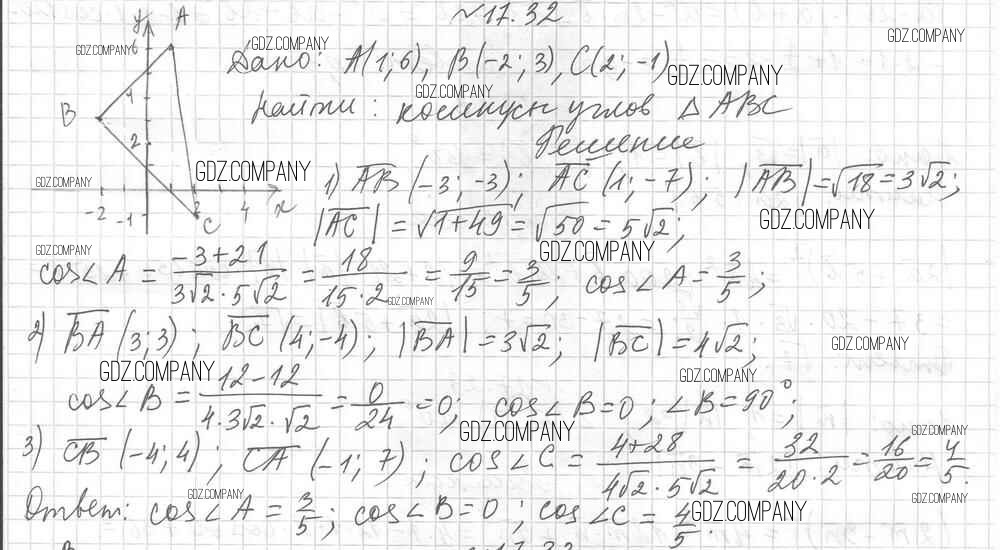 №17.32
GDZ.COMPANY
y A
GDZ.COMPANY 6
GDZ.COMPANY
Дано: A(1;6), B(-2;3), C(2;-1)
GDZ.COMPANY
GDZ.COMPANY
B 4
Найти: косинусы углов △ABC
2
Решение
GDZ.COMPANY
GDZ.COMPANY
1) AB (-3;-3); AC (1;-7); |AB|=√18=3√2;
-2 -1 2 4 x
C
|AC|=√1+49=√50=5√2;
GDZ.COMPANY
GDZ.COMPANY
GDZ.COMPANY
cos∠A = -3+21/3√2·5√2 = 18/15·2 = 9/15 = 3/5; cos∠A = 3/5;
GDZ.COMPANY
2) BA (3;3); BC (4;-4); |BA|=3√2; |BC|=4√2;
GDZ.COMPANY
GDZ.COMPANY
GDZ.COMPANY
cos∠B = 12-12/4·3√2·√2 = 0/24 = 0; cos∠B=0; ∠B=90°;
GDZ.COMPANY
GDZ.COMPANY
3) CB (-4;4); CA (-1;7); cos∠C = 4+28/4√2·5√2 = 32/20·2 = 16/20 = 4/5.
GDZ.COMPANY
GDZ.COMPANY
Ответ: cos∠A = 3/5; cos∠B=0; cos∠C = 4/5
GDZ.COMPANY